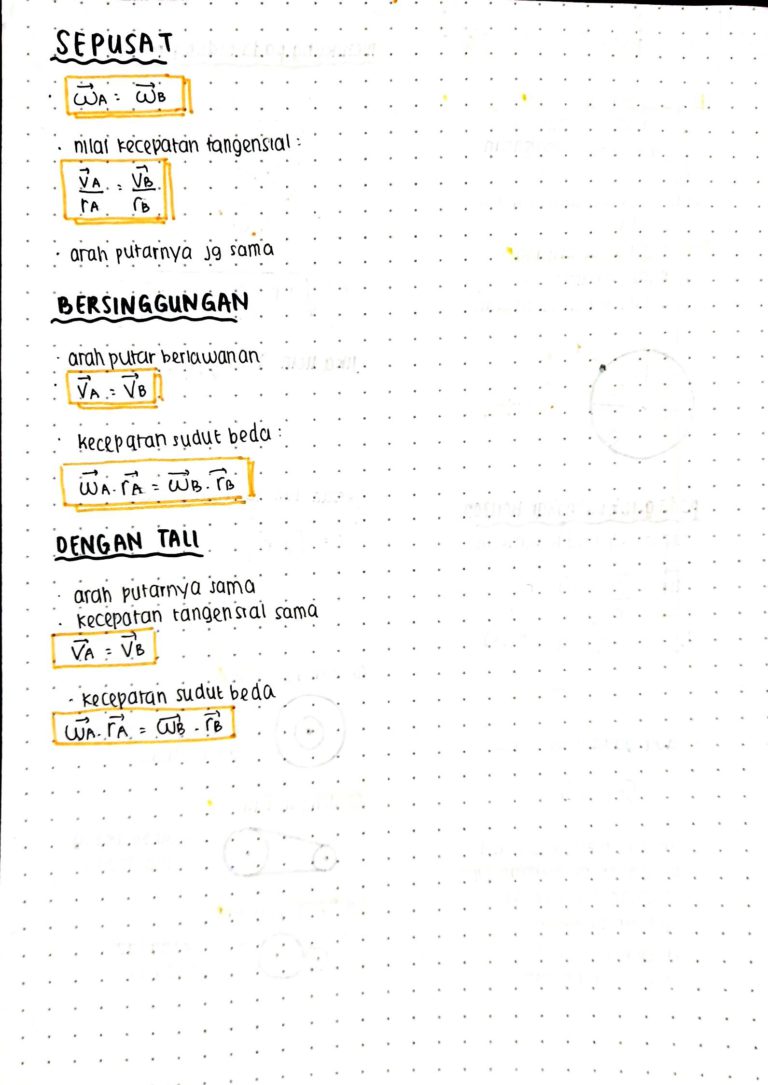 SEPUSAT
· ω⃗A = ω⃗B
· nilai kecepatan tangensial :
v⃗A / rA = v⃗B / rB
· arah putarnya jg sama
BERSINGGUNGAN
· arah putar berlawanan
v⃗A = v⃗B
· kecepatan sudut beda :
ω⃗A . r⃗A = ω⃗B . r⃗B
DENGAN TALI
· arah putarnya sama
· kecepatan tangensial sama
v⃗A = v⃗B
· kecepatan sudut beda
ω⃗A . r⃗A = ω⃗B . r⃗B